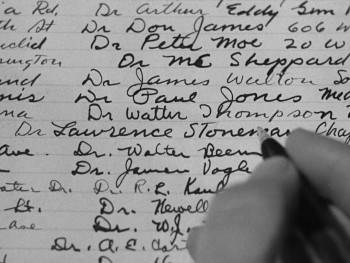 a Rd. Dr Arthur Eddy Gen
th St Dr Don James 606 W
uclid Dr Peter Moe 20 W
ington Dr Mc Sheppard
and Dr James Walton So
nis Dr Paul Jones Med
na Dr Walter Thompson
Dr Lawrence Stoneman Chag
ave. Dr. Walter Beem
Dr. James Vogle
ater Dr. Dr. R. L. Kau
St. Dr. Newell
ave Dr. W. J.
Dr. A. E. Cart